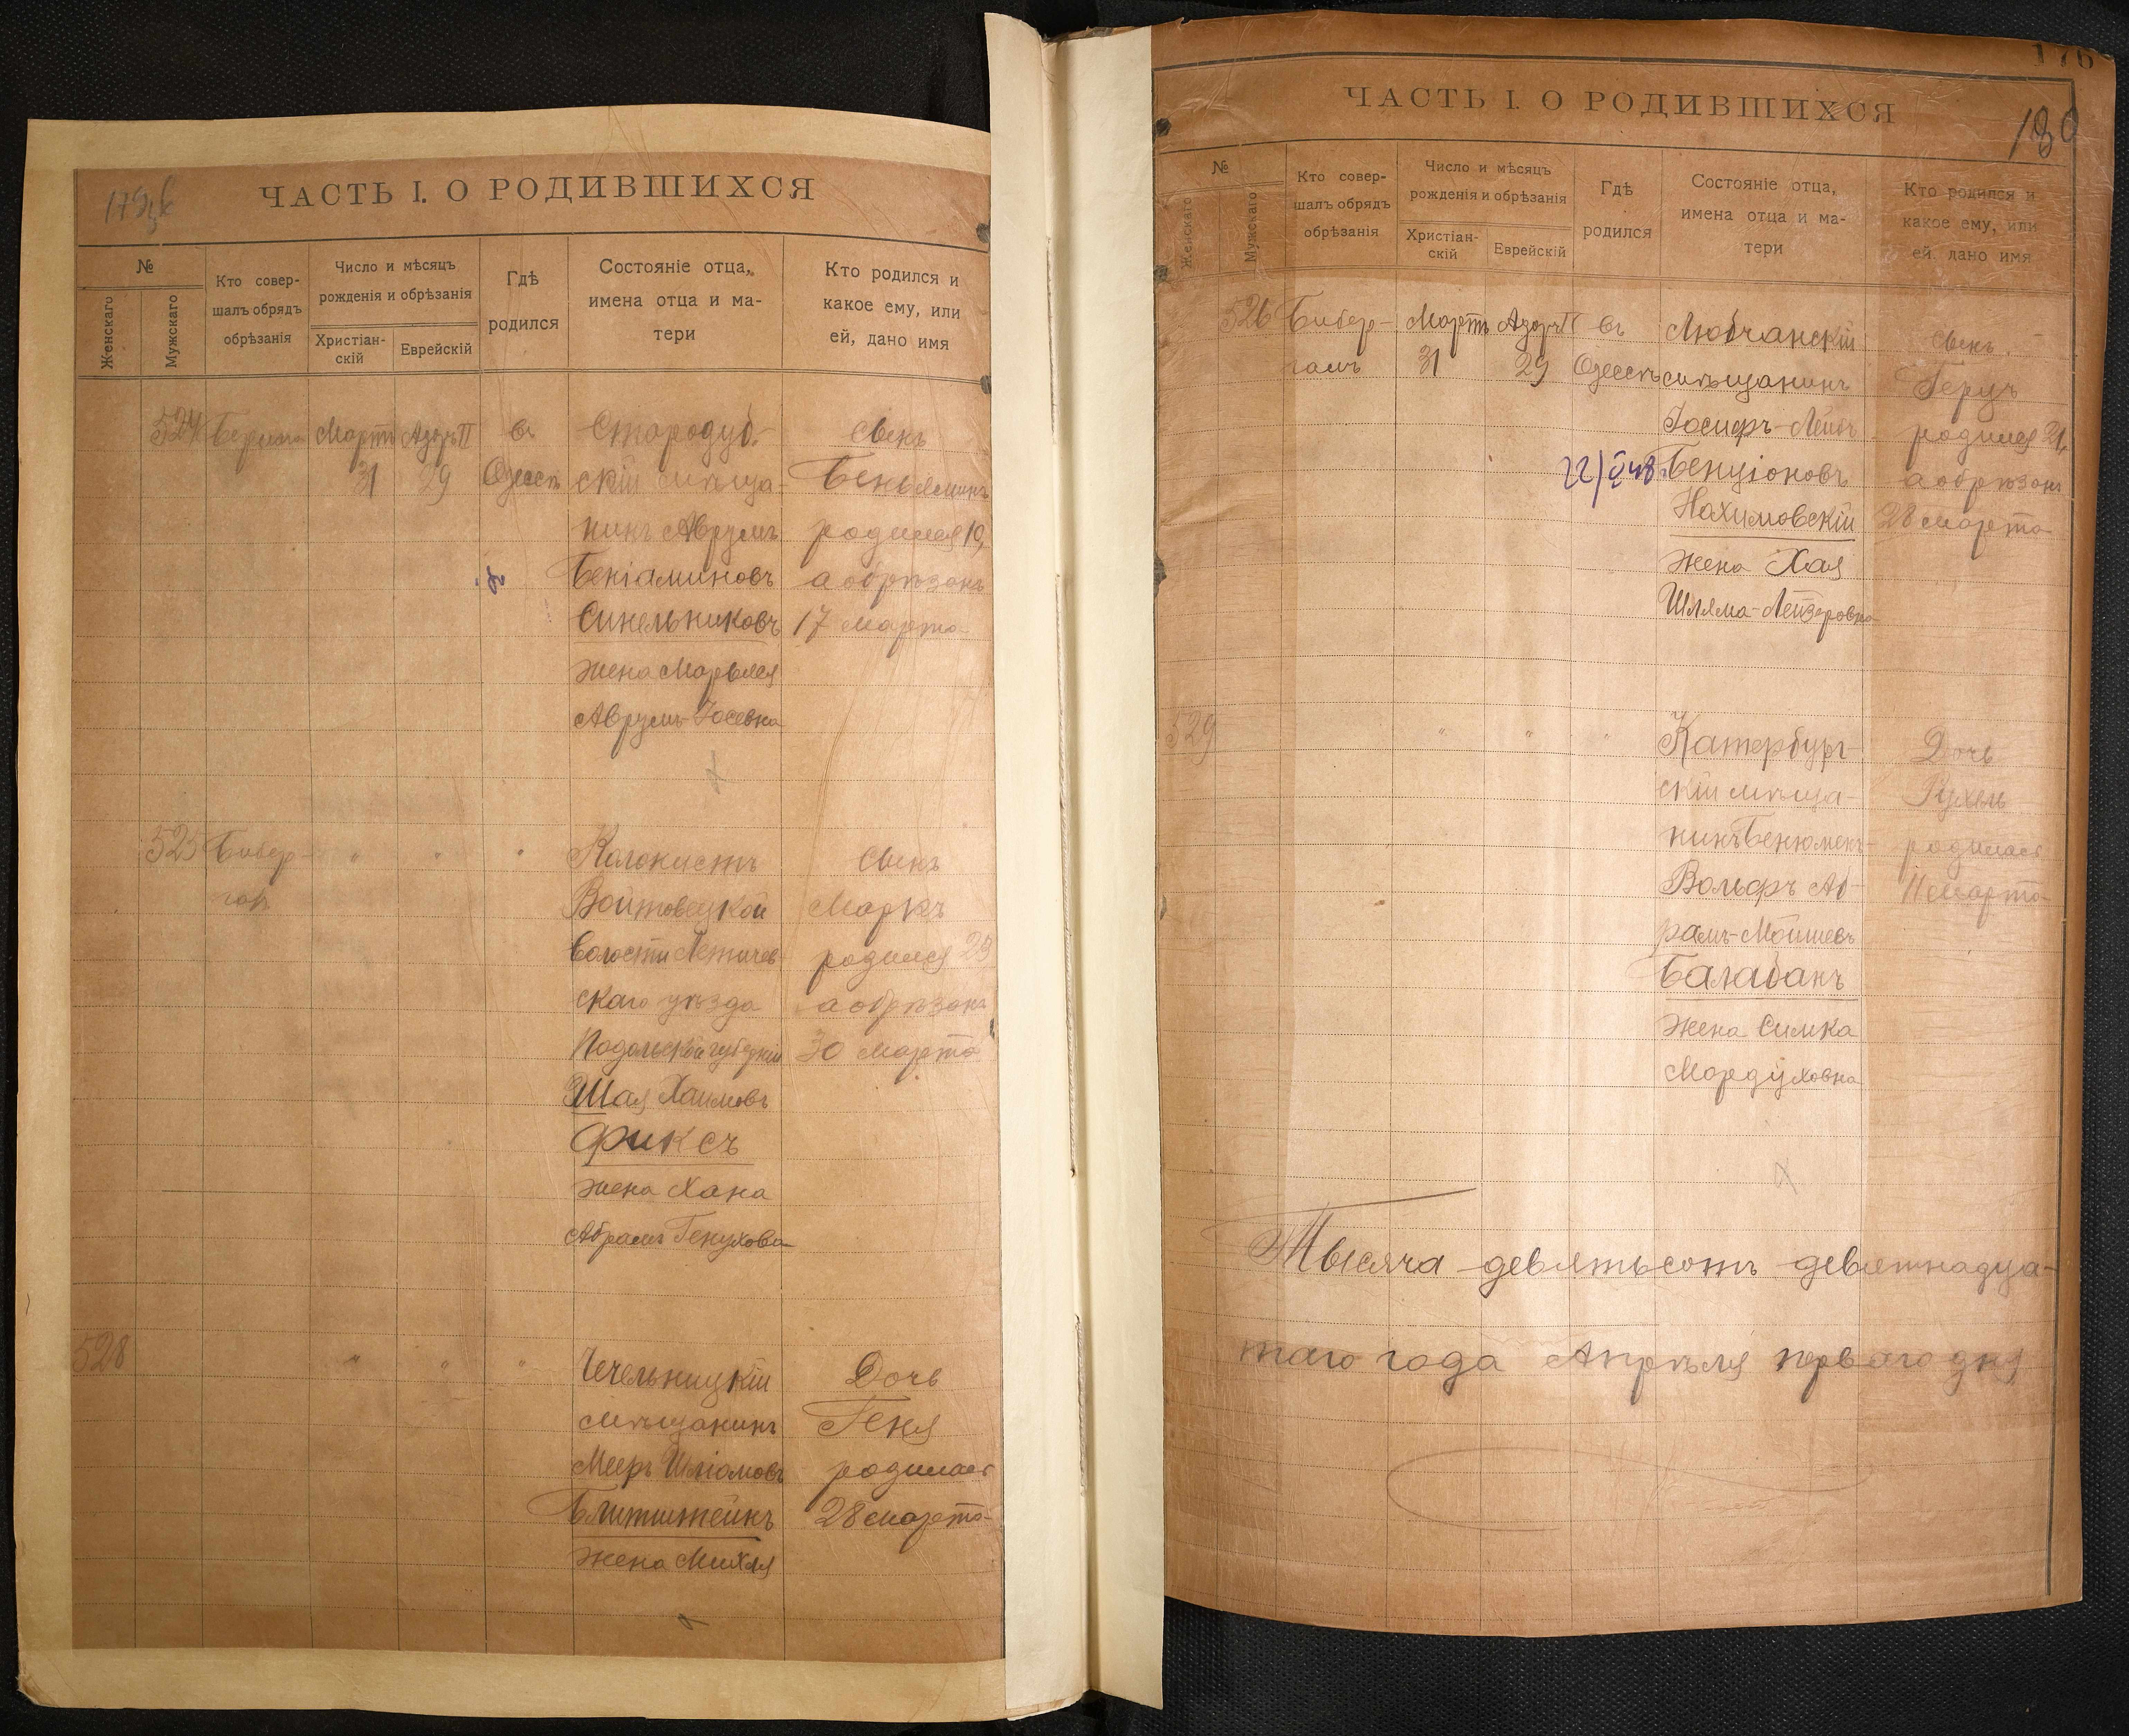 ЧАСТЬ I. О РОДИВШИХСЯ
№
Женскаго
Мужскаго
Кто совер-
шалъ обрядъ
обрѣзанія
Число и мѣсяцъ
рожденія и обрѣзанія
Христіан-
скій
Еврейскій
Гдѣ
родился
Состояніе отца,
имена отца и ма-
тери
Кто родился и
какое ему, или
ей, дано имя
524
Мартъ
31
Адаръ II
29
въ
Одессѣ
Стародуб-
скій мѣща-
нинъ Аврумъ
Беніаминовъ
Синельниковъ
жена Марьяся
Аврумъ-Іосевна
Сынъ
Беньяминъ
родился 10,
а обрѣзанъ
17 марта
525
Бибер-
галъ
"
"
"
Колонистъ
Войтовецкой
волости Летичев-
скаго уѣзда
Подольской губерніи
Шая Хаимовъ
Фиксъ
жена Хана
Абрамъ Генухова
Сынъ
Маркъ
родился 23
а обрѣзанъ
30 марта
528
"
"
"
Чечельницкій
мѣщанинъ
Мееръ Шліомовъ
Блитштейнъ
жена Михля
Дочь
Геня
родилась
28 марта
176
180
ЧАСТЬ I. О РОДИВШИХСЯ
№
Женскаго
Мужскаго
Кто совер-
шалъ обрядъ
обрѣзанія
Число и мѣсяцъ
рожденія и обрѣзанія
Христіан-
скій
Еврейскій
Гдѣ
родился
Состояніе отца,
имена отца и ма-
тери
Кто родился и
какое ему, или
ей, дано имя
526
Бибер-
галъ
Мартъ
31
Адаръ II
29
въ
Одессѣ
Любчанскій
мѣщанинъ
Іосифъ-Лейбъ
Бенціоновъ
Нахимовскій
жена Хая
Шлема-Лейзеровна
Сынъ
Герцъ
родился 21,
а обрѣзанъ
28 марта
529
"
"
"
Катербург-
скій мѣща-
нинъ Бенюменъ-
Вольфъ Аб-
рамъ-Мошиевъ
Балабанъ
жена Симка
Мордуховна
Дочь
Рухель
родилась
11 марта
Тысяча девятьсотъ девятнадца-
таго года Апрѣля перваго дня